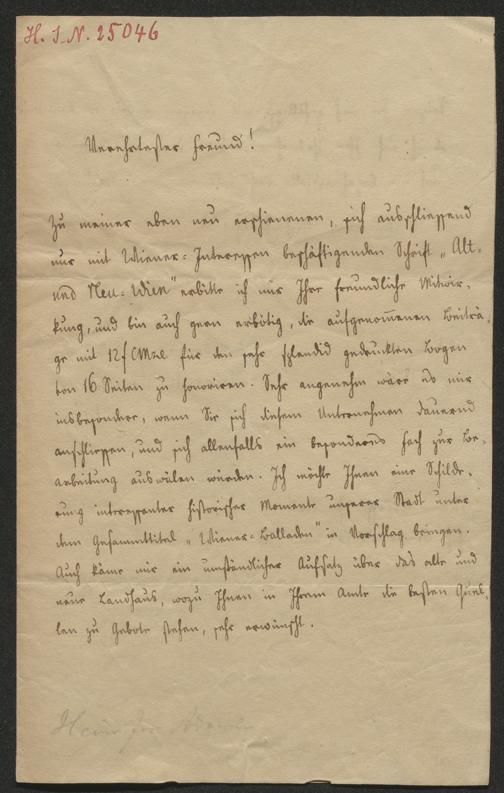 H. I. N. 25046
Verehrtester Freund!
Zu meiner eben neu erschienenen, sich ausschliessend
nur mit Wiener-Interessen beschäftigenden Schrift „Alt-
und Neu-Wien" erbitte ich mir Ihre freundliche Mitwir-
kung, und bin auch gern erbötig, die aufgenommenen Beiträ-
ge mit 12 f CMze für den sehr splendid gedruckten Bogen
von 16 Seiten zu honoriren. Sehr angenehm wäre es mir
insbesondere, wenn Sie sich diesem Unternehmen dauernd
anschliessen, und sich allenfalls ein besonderes Fach zur Be-
arbeitung auswälen würden. Ich möchte Ihnen eine Schilde-
rung interessanter historischer Momente unserer Stadt unter
dem Gesammttitel „Wiener-Balladen" in Vorschlag bringen.
Auch käme mir ein umständlicher Aufsatz über das alte und
neue Landhaus, wozu Ihnen in Ihrem Amte die besten Quel-
len zu Gebote stehen, sehr erwünscht.